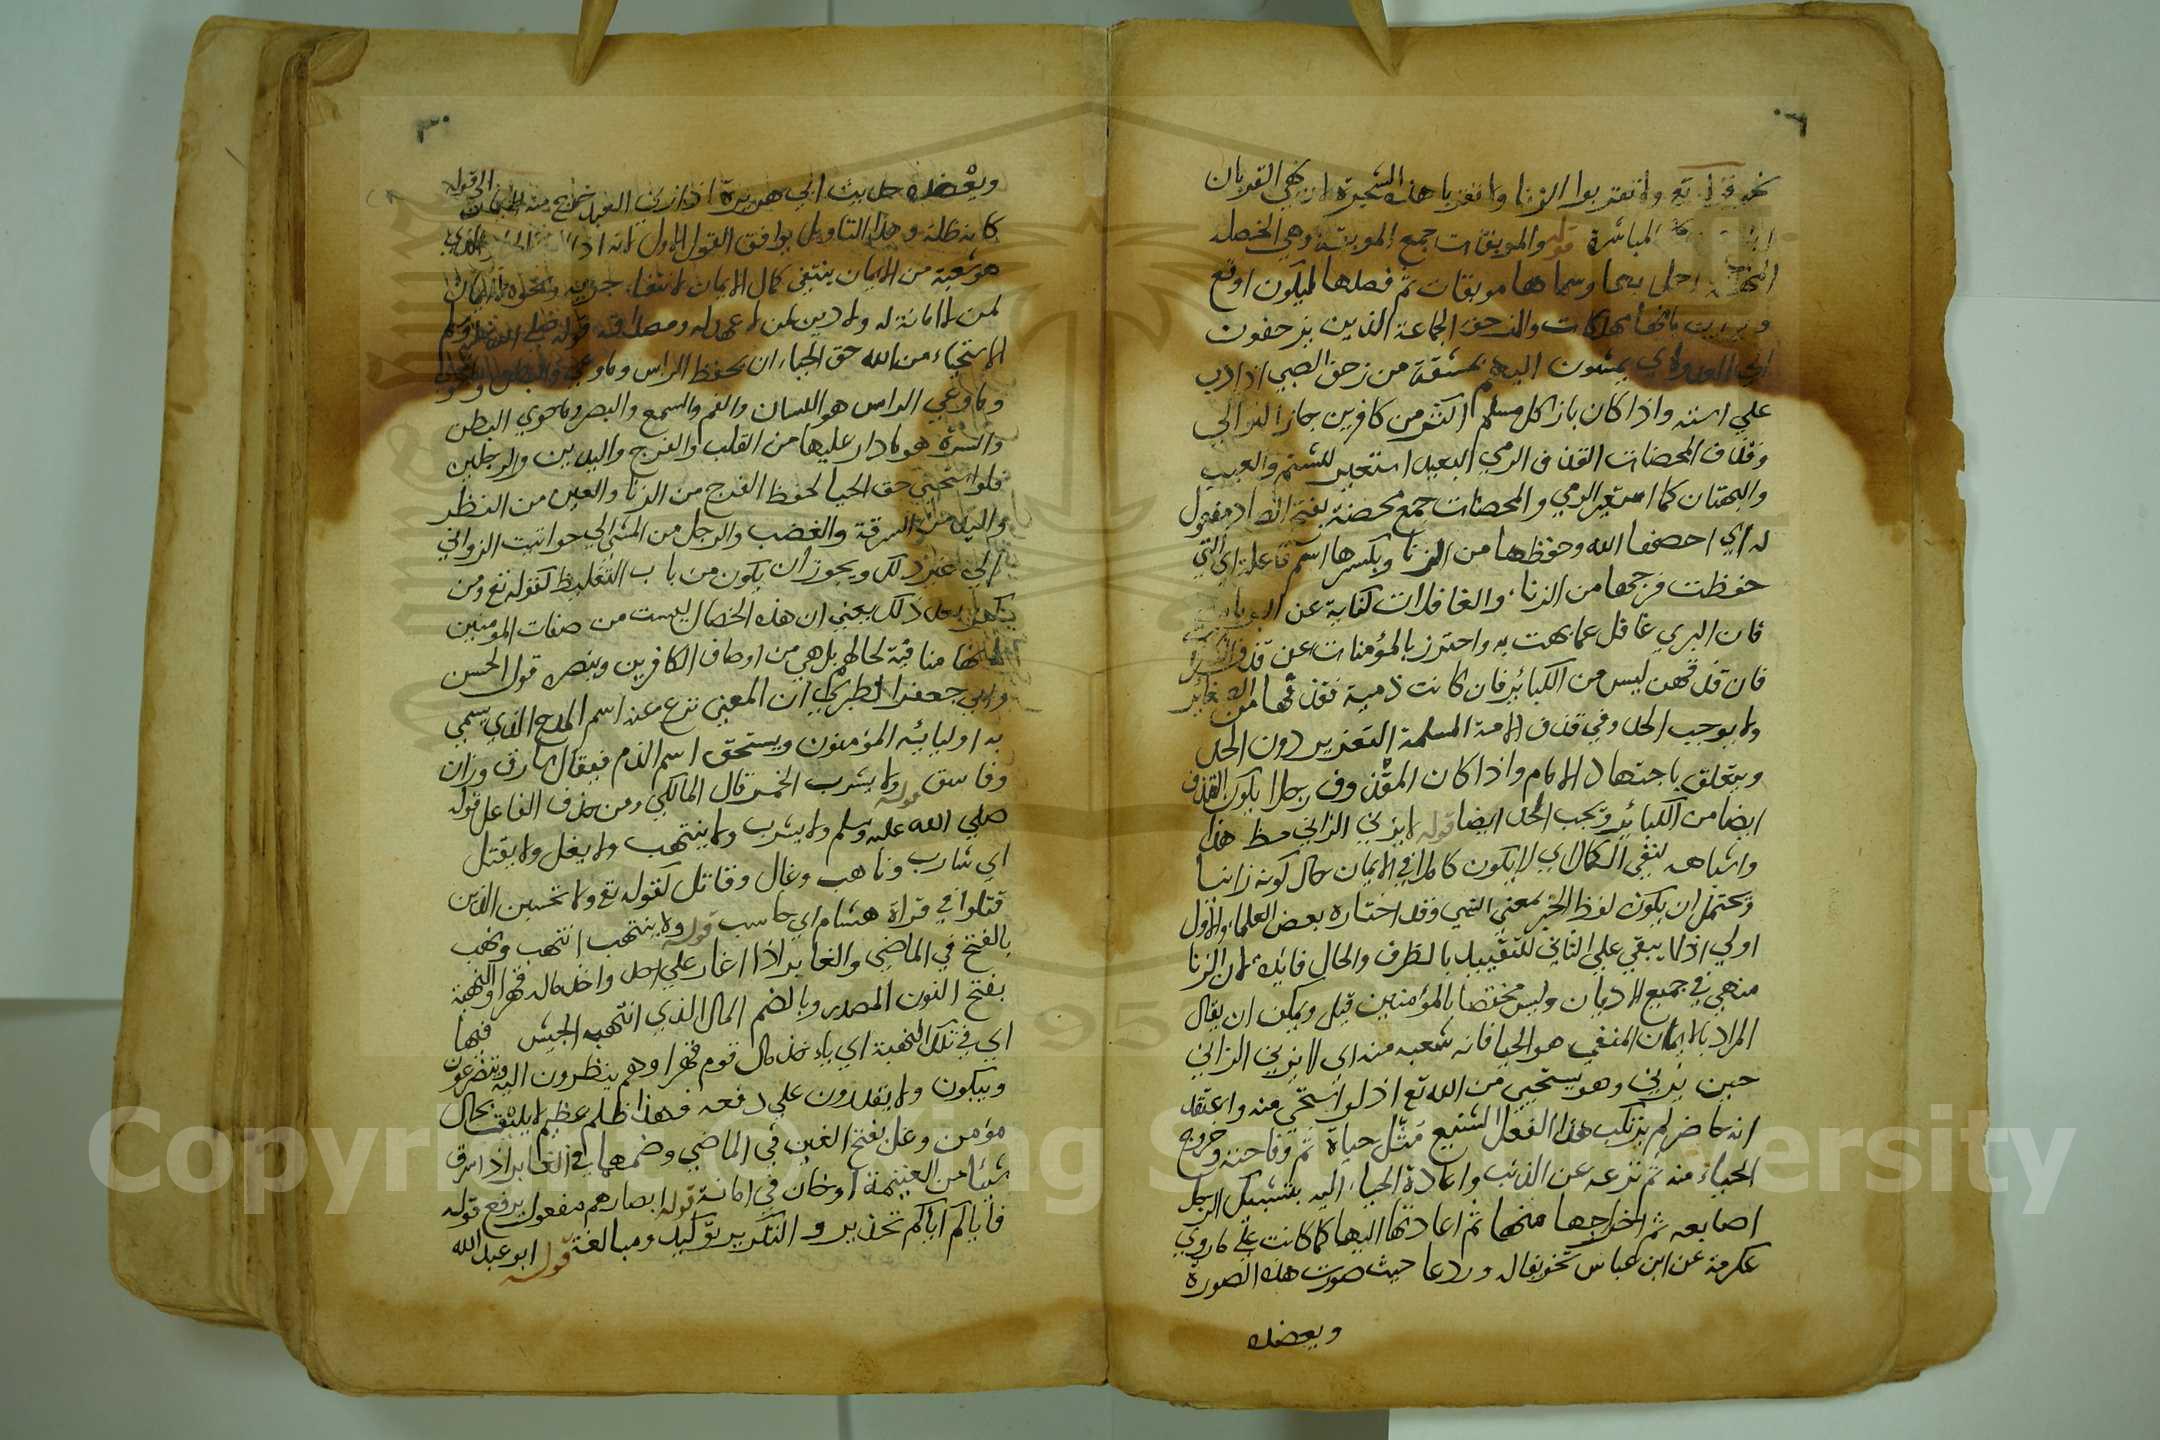 نحو قوله تع ولا تقربوا الزنا ولا تقربا هذه الشجرة لان نهي القربان
المباشرة قوله والموبقات جمع الموبقة وهي الخصلة
اجمل بها وسماها موبقات ثم فصلها ليكون اوقع
بانها مهلكات والزحف الجماعة الذين يزحفون
الى العدو اي يمشون اليهم بمشقة من زحف الصبي اذا دب
علي استه واذا كان بازا كل مسلم اكثر من كافرين جاز التولي
وقذف المحصنات القذف الرمي البعيد استعير للشتم والعيب
والبهتان كما استعير الرمي والمحصنات جمع محصنة بفتح الصاد مفعول
له اي احصنها الله وحفظها من الزنا وبكسرها اسم فاعلة اي التي
حفظت فرجها من الزنا والغافلات كناية عن البريات
فان البري غافل عما بهت به واحترز بالمؤمنات عن قذف الكافرات
فان قذفهن ليس من الكبائر فان كانت ذمية فقذفها من الصغائر
ولا يوجب الحد وفي قذف الامة المسلمة التعزير دون الحد
ويتعلق باجتهاد الامام واذا كان المقذوف رجلا يكون القذف
ايضا من الكبائر ويجب الحد ايضا قوله لا يزني الزاني مظ هذا
واشباهه لنفي الكمال اي لا يكون كاملا في الايمان حال كونه زانيا
ويحتمل ان يكون لفظ الخبر بمعني النهي وقد اختاره بعض العلماء والاول
اولي اذ لا يبقي علي الثاني للتقييد بالظرف والحال فائدة لان الزنا
منهي في جميع الاديان وليس مختصا بالمؤمنين قيل ويمكن ان يقال
المراد بالايمان المنفي هو الحيا فانه شعبه منه اي لا يزني الزاني
حين يزني وهو يستحيي من الله تع اذ لو استحي منه واعتقد
انه حاضر لم يرتكب هذا الفعل الشنيع مثل حياة ثم وقاحته وخروج
الحياء منه ثم نزعه عن الذنب واعادة الحياء اليه بتشبيك الرجل
اصابعه ثم اخراجها منها ثم اعادتها اليها كما كانت علي ما روي
عكرمة عن ابن عباس نحو يقاله وردعا حيث صورت هذه الصورة
ويعضده
ويعضده حديث ابي هريرة اذا زني العبد خرج منه الايمان الي قوله
كانه ظلة وهذا التاويل يوافق القول الاول لانه اذا
هو شعبة من الايمان ينتفي كمال الايمان لانتفاء جزيه ونحوه لا ايمان
لمن لا امانة له ولا دين لمن لا عهد له ومصداقه قوله صلي الله عليه وسلم
الاستحياء من الله حق الحياء ان يحفظ الراس وما وعي والبطن وما حوي
وما وعي الراس هو اللسان والفم والسمع والبصر وما حوي البطن
والسرة هو ما دار عليها من القلب والفرج واليدين والرجلين
فلو استحيي حق الحيا لحفظ الفرج من الزنا والعين من النظر
واليد من السرقة والغضب والرجل من المشي الي حوانيت الزواني
الي غير ذلك ويجوز أن يكون من باب التغليظ كقوله تع ومن
يكفر بعد ذلك يعني ان هذه الخصال ليست من صفات المومنين
لانها منافية لحالهم بل هي من اوصاف الكافرين وينصره قول الحسن
وابي جعفر الطبري ان المعني نزع عنه اسم المدح الذي يسمي
به اوليائه المؤمنون ويستحق اسم الذم فيقال سارق وزان
وفاسق قوله ولا يشرب الخمر قال المالكي ومن حذف الفاعل قوله
صلي الله عليه وسلم ولا يشرب ولا ينتهب ولا يغل ولا يقتل
اي شارب وناهب وغال وقاتل كقوله تع ولا تحسبن الذين
قتلوا في قراة هشام اي حاسب قوله ولا ينتهب انتهب ونهب
بالفتح في الماضي والغابر اذا اغار علي احد واخذ ماله قهرا والنهبة
بفتح النون المصدر وبالضم المال الذي انتهبه الجيش فيها
اي في تلك النهبة اي ياخذ مال قوم قهرا وهم ينظرون اليه ويتضرعون
ويبكون ولا يقدرون علي دفعه فهذا ظلم عظيم لا يليق بحال
مؤمن وغل بفتح الغين في الماضي وضمها في الغابر اذا سرق
شيئا من الغنيمة او خان في امانة قوله ابصارهم مفعول يرفع قوله
فاياكم اياكم تحذير والتكرير توكيد ومبالغة قوله ابو عبد الله
Copyright © King Saud University